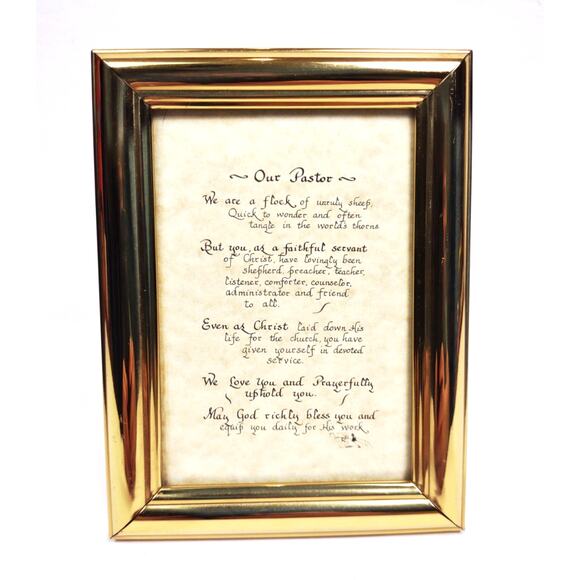 ~ Our Pastor ~
We are a flock of unruly sheep,
Quick to wonder and often
tangle in the world's thorns.
But you, as a faithful servant
of Christ, have lovingly been
shepherd, preacher, teacher,
listener, comforter, counselor,
administrator and friend
to all.
Even as Christ laid down His
life for the church, you have
given yourself in devoted
service.
We Love You and Prayerfully
uphold you.
May God richly bless you and
equip you daily for His work